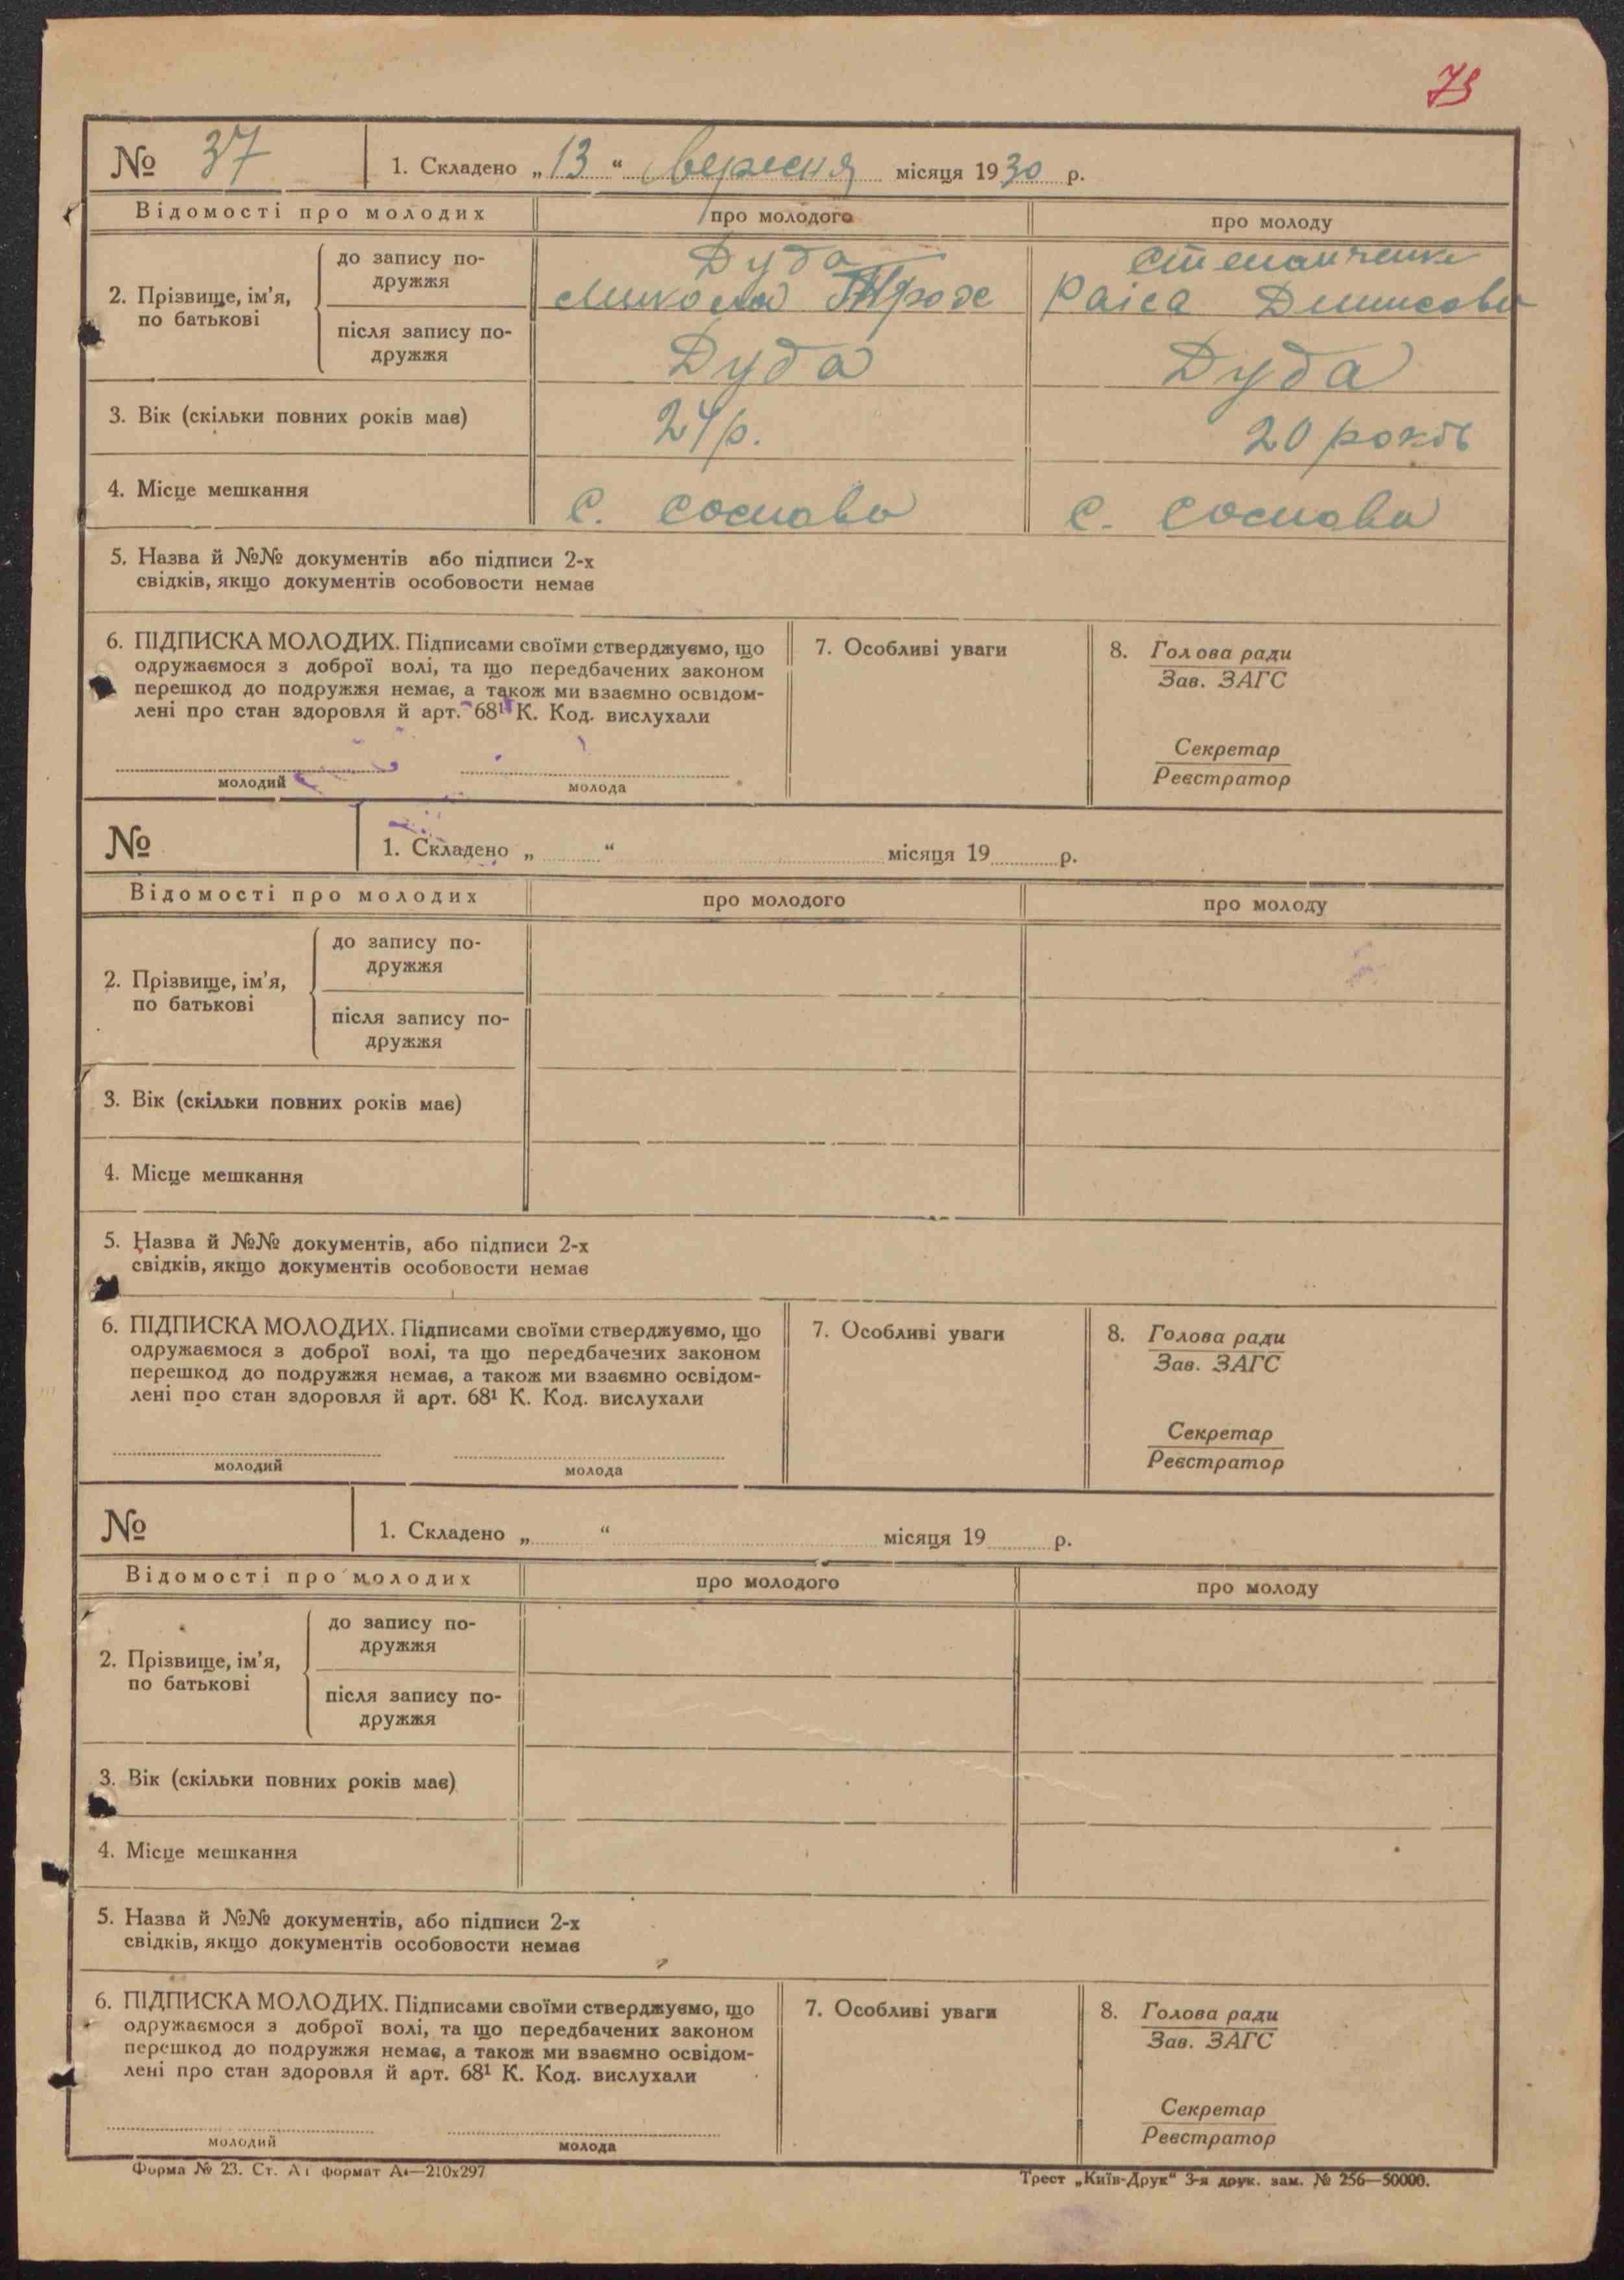 73
№ 37 1. Складено „ 13 “ вересня місяця 1930 р.
Відомості про молодих про молодого про молоду
2. Прізвище, ім’я, по батькові
до запису подружжя
Дуда
Микола Трохе
Степанченко
Раіса Денисовн
після запису подружжя
Дуда Дуда
3. Вік (скільки повних років має) 24 р. 20 років
4. Місце мешкання с. Соснова с. Соснова
5. Назва й №№ документів або підписи 2-х
свідків, якщо документів особовости немає
6. ПІДПИСКА МОЛОДИХ. Підписами своїми стверджуємо, що
одружаємося з доброї волі, та що передбачених законом
перешкод до подружжя немає, а також ми взаємно освідом-
лені про стан здоровля й арт. 68¹ К. Код. вислухали
молодий молода
7. Особливі уваги
8. Голова ради
Зав. ЗАГС
Секретар
Реєстратор
№ 1. Складено „ “ місяця 19 р.
Відомості про молодих про молодого про молоду
2. Прізвище, ім’я,
по батькові
до запису по-
дружжя
після запису по-
дружжя
3. Вік (скільки повних років має)
4. Місце мешкання
5. Назва й №№ документів, або підписи 2-х
свідків, якщо документів особовости немає
6. ПІДПИСКА МОЛОДИХ. Підписами своїми стверджуємо, що
одружаємося з доброї волі, та що передбачених законом
перешкод до подружжя немає, а також ми взаємно освідом-
лені про стан здоровля й арт. 68¹ К. Код. вислухали
молодий молода
7. Особливі уваги
8. Голова ради
Зав. ЗАГС
Секретар
Реєстратор
№ 1. Складено „ “ місяця 19 р.
Відомості про молодих про молодого про молоду
2. Прізвище, ім’я,
по батькові
до запису по-
дружжя
після запису по-
дружжя
3. Вік (скільки повних років має)
4. Місце мешкання
5. Назва й №№ документів, або підписи 2-х
свідків, якщо документів особовости немає
6. ПІДПИСКА МОЛОДИХ. Підписами своїми стверджуємо, що
одружаємося з доброї волі, та що передбачених законом
перешкод до подружжя немає, а також ми взаємно освідом-
лені про стан здоровля й арт. 68¹ К. Код. вислухали
молодий молода
7. Особливі уваги
8. Голова ради
Зав. ЗАГС
Секретар
Реєстратор
Форма № 23. Ст. А1 формат А4—210х297 Трест „Київ-Друк“ 3-я друк. зам. № 256—50000.